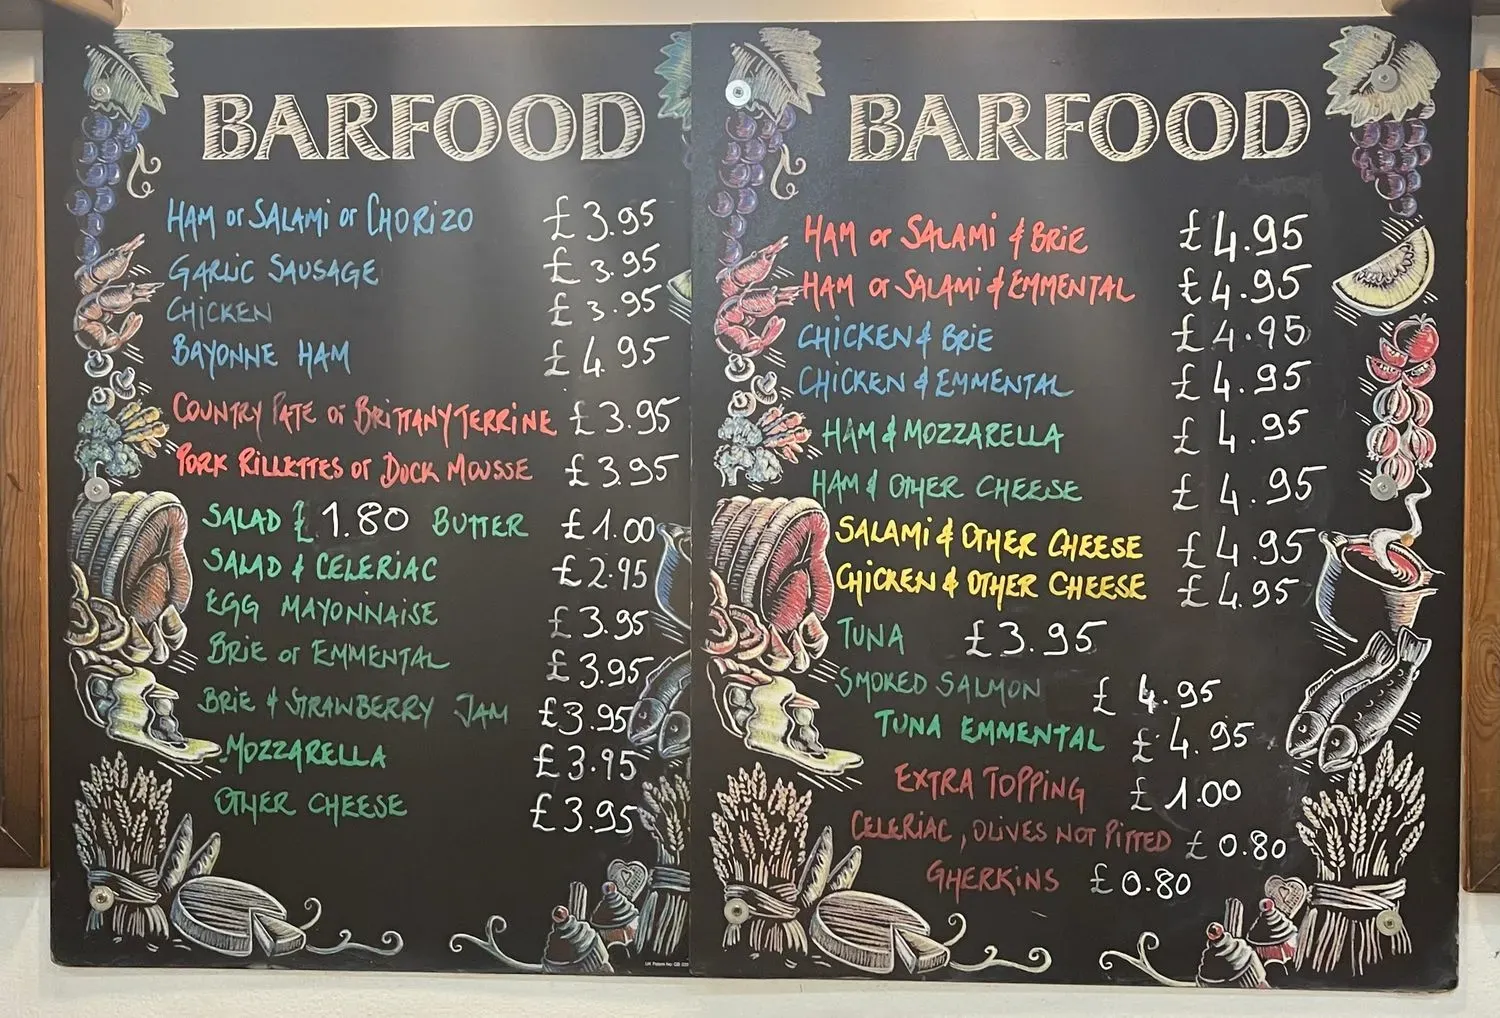 BARFOOD
HAM or SALAMI or CHORIZO £3.95
GARLIC SAUSAGE £3.95
CHICKEN £3.95
BAYONNE HAM £4.95
COUNTRY PATE or BRITTANY TERRINE £3.95
PORK RILLETTES or DUCK MOUSSE £3.95
SALAD £1.80 BUTTER £1.00
SALAD & CELERIAC £2.95
EGG MAYONNAISE £3.95
BRIE or EMMENTAL £3.95
BRIE & STRAWBERRY JAM £3.95
MOZZARELLA £3.95
OTHER CHEESE £3.95
BARFOOD
HAM or SALAMI & BRIE £4.95
HAM or SALAMI & EMMENTAL £4.95
CHICKEN & BRIE £4.95
CHICKEN & EMMENTAL £4.95
HAM & MOZZARELLA £4.95
HAM & OTHER CHEESE £4.95
SALAMI & OTHER CHEESE £4.95
CHICKEN & OTHER CHEESE £4.95
TUNA £3.95
SMOKED SALMON £4.95
TUNA EMMENTAL £4.95
EXTRA TOPPING £1.00
CELERIAC, OLIVES NOT PITTED £0.80
GHERKINS £0.80